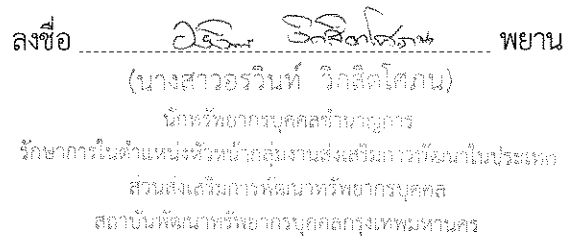 ลงชื่อ อรวินท์ วิกสิตโศภน พยาน
(นางสาวอรวินท์ วิกสิตโศภน)
นักทรัพยากรบุคคลชำนาญการ
รักษาการในตำแหน่งหัวหน้ากลุ่มงานส่งเสริมการพัฒนาในประเทศ
ส่วนส่งเสริมการพัฒนาทรัพยากรบุคคล
สถาบันพัฒนาทรัพยากรบุคคลกรุงเทพมหานคร